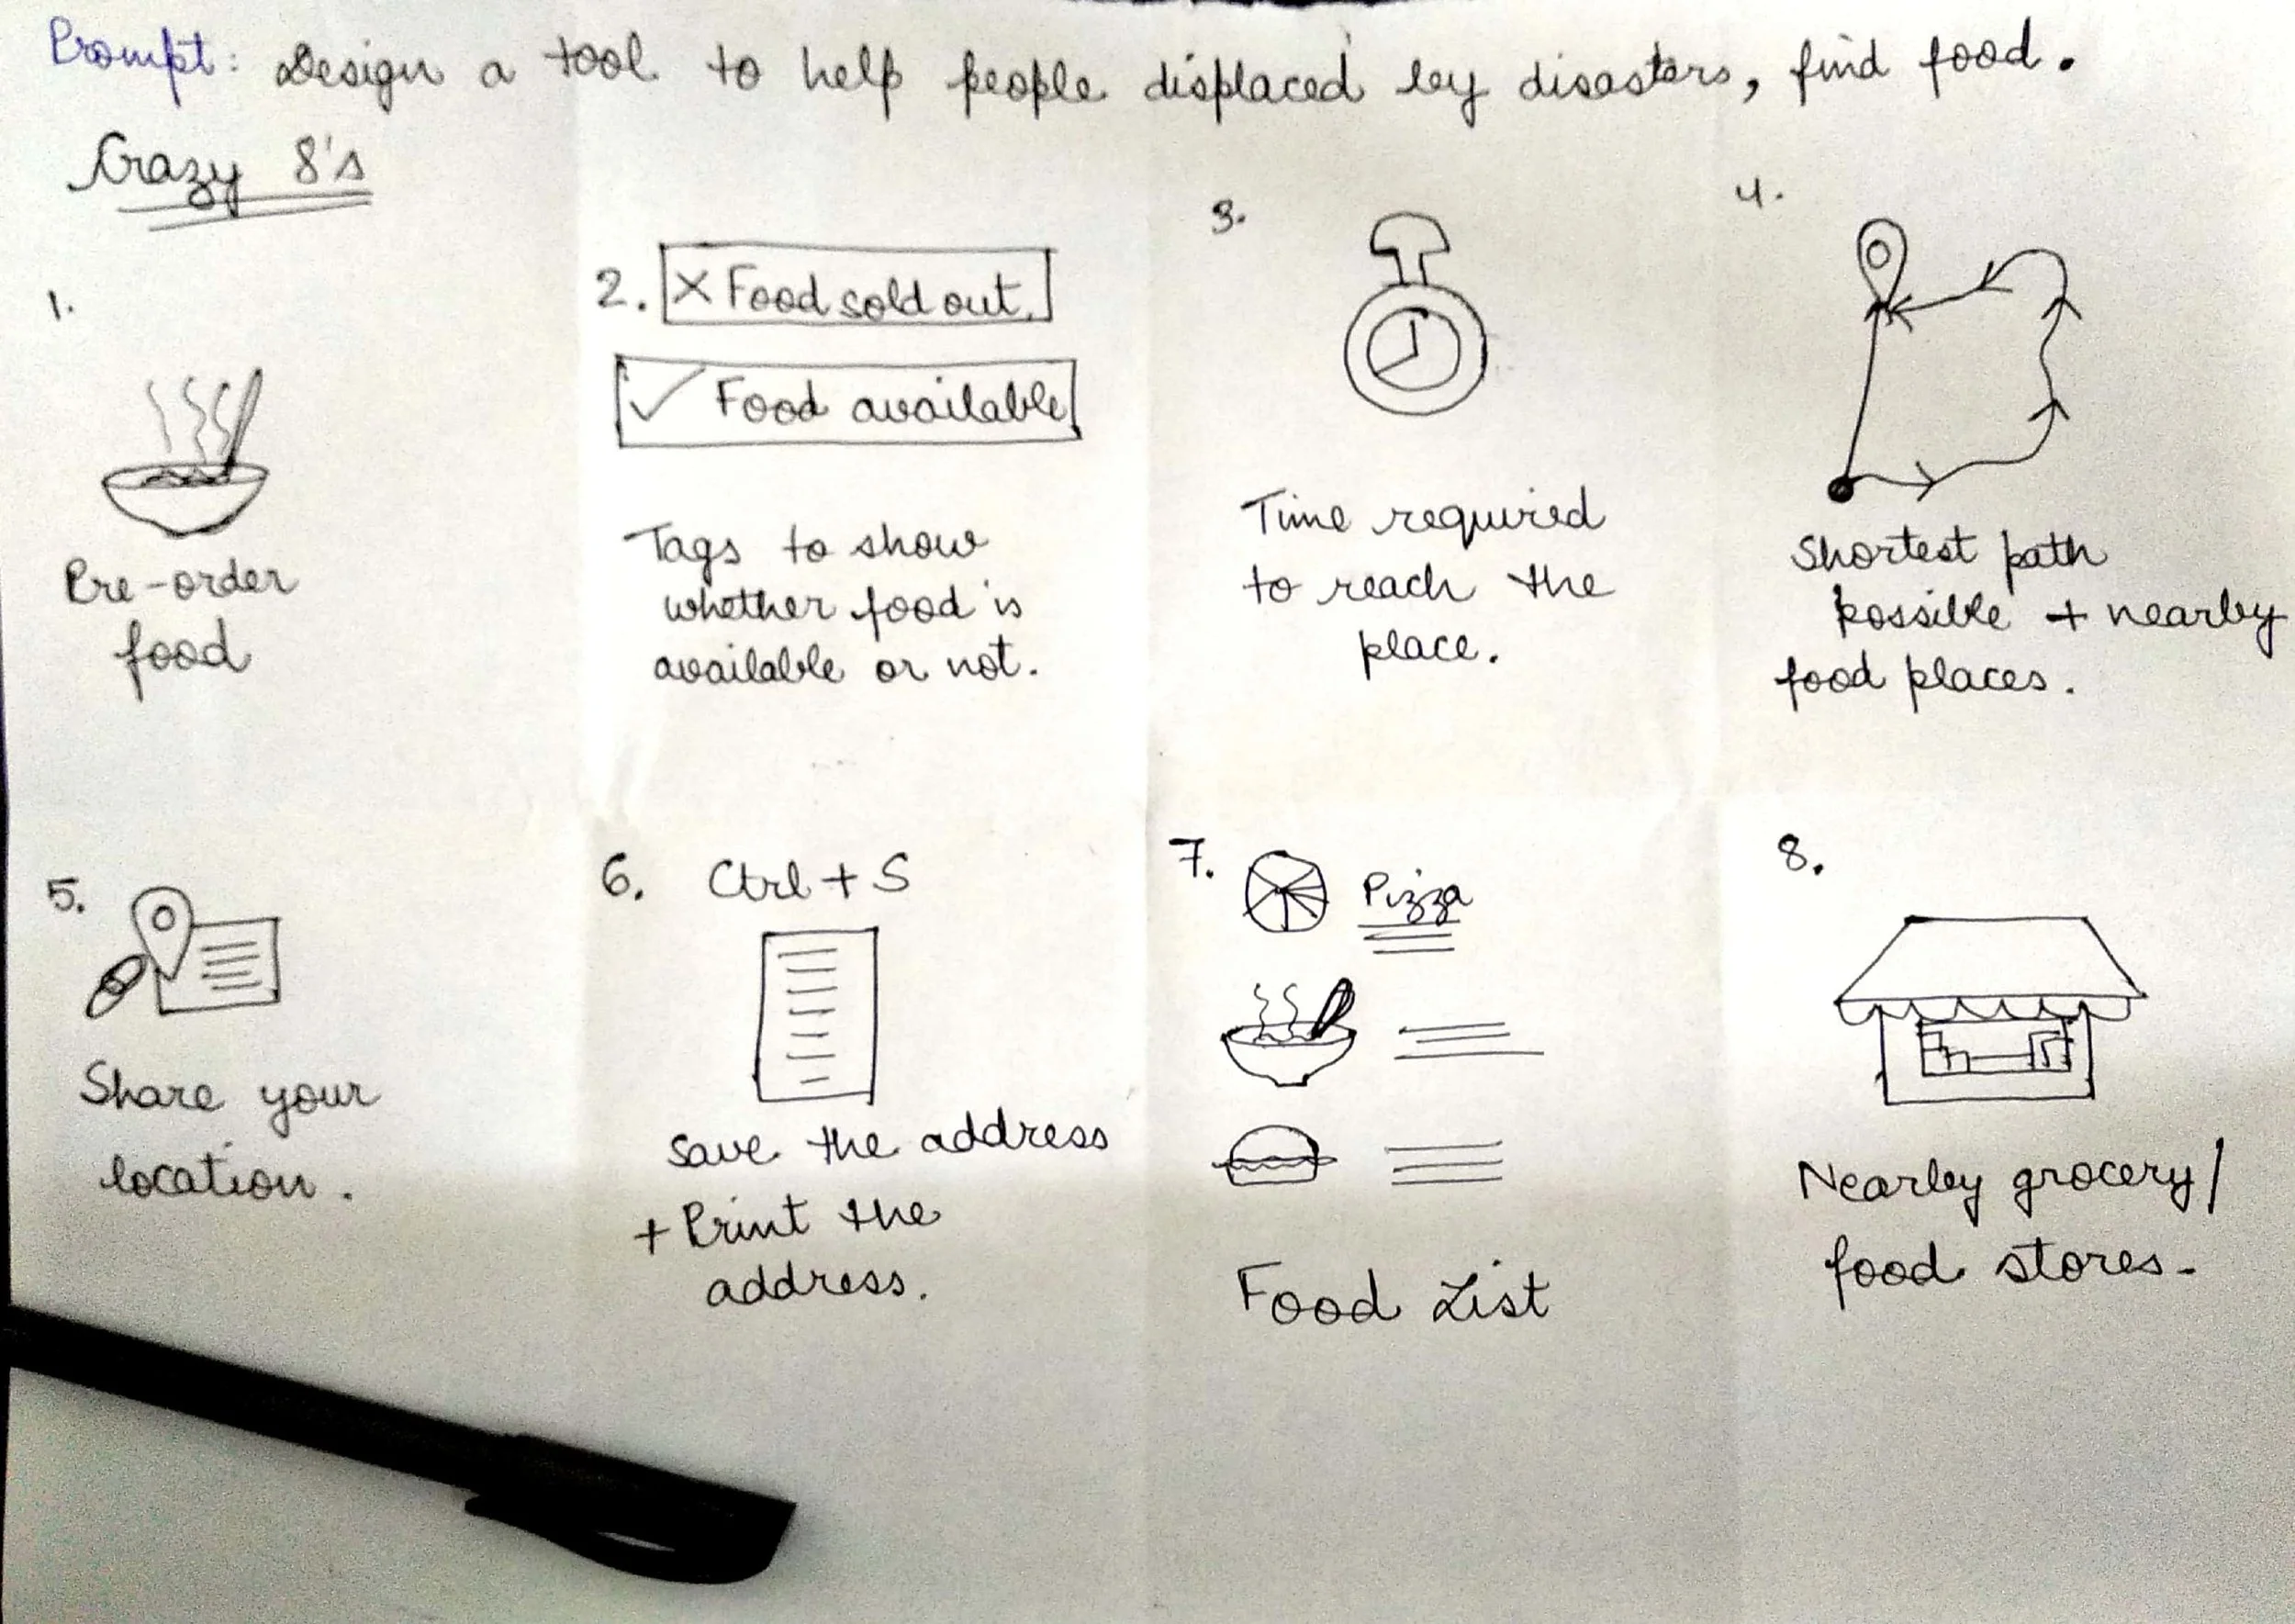 Prompt: Design a tool to help people displaced by disasters, find food.
Crazy 8's
1.
Pre-order
food
2. X Food sold out.
✓ Food available
Tags to show
whether food is
available or not.
3.
Time required
to reach the
place.
4.
Shortest path
possible + nearby
food places.
5.
Share your
location.
6. Ctrl + S
Save the address
+ Print the
address.
7. Pizza
Food List
8.
Nearby grocery/
food stores.